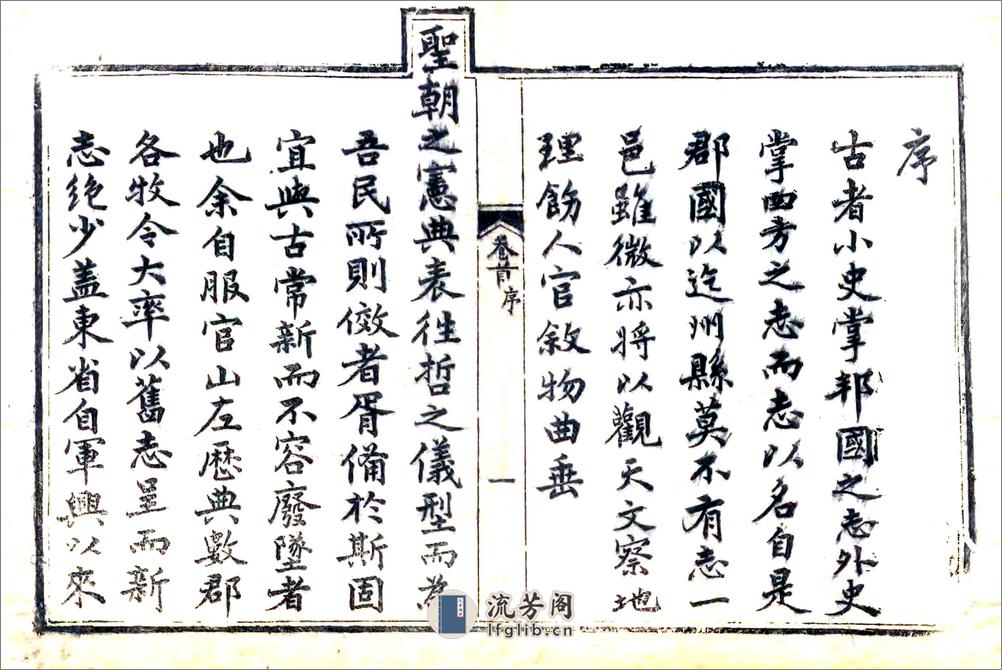 序
古者小史掌邦國之志外史
掌四方之志而志以名自是
郡國以迄州縣莫不有志一
邑雖微亦將以觀天文察地
理飭人官敘物曲垂
卷首 序
一
聖朝之憲典表往哲之儀型而為
吾民所則傚者胥備於斯固
宜與古常新而不容廢墜者
也余自服官山左歷典數郡
各牧令大率以舊志呈而新
志絶少盖東省自軍興以來
流芳阁
lfglib.cn